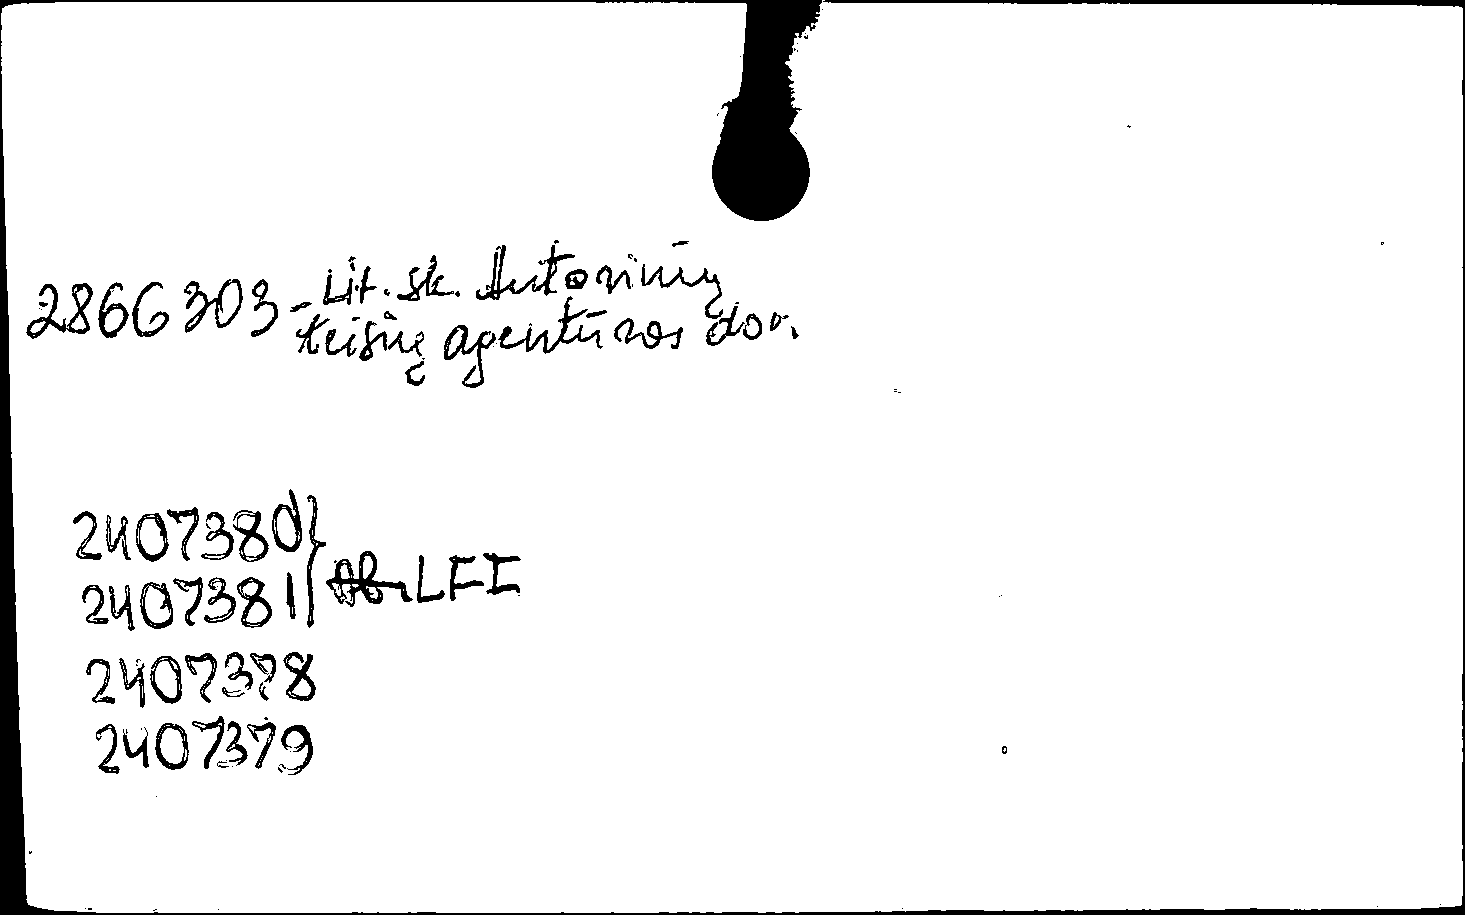 2866303 - Lit. sk. Autorinių
teisių agentūros dov.
2407380
2407381 LFI
2407378
2407379